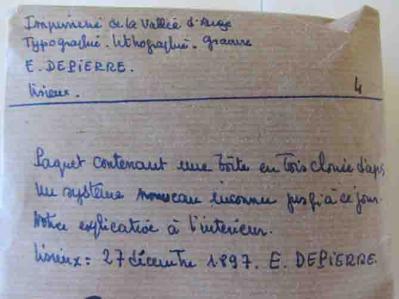 Imprimerie de la Vallée d'Auge
Typographie. lithographie. gravure
E. DEPIERRE.
lisieux. 4
Paquet contenant une boîte en bois clouée d'après
un système nouveau inconnu jusqu'à ce jour.
Notice explicative à l'intérieur.
lisieux = 27 décembre 1897. E. DEPIERRE.